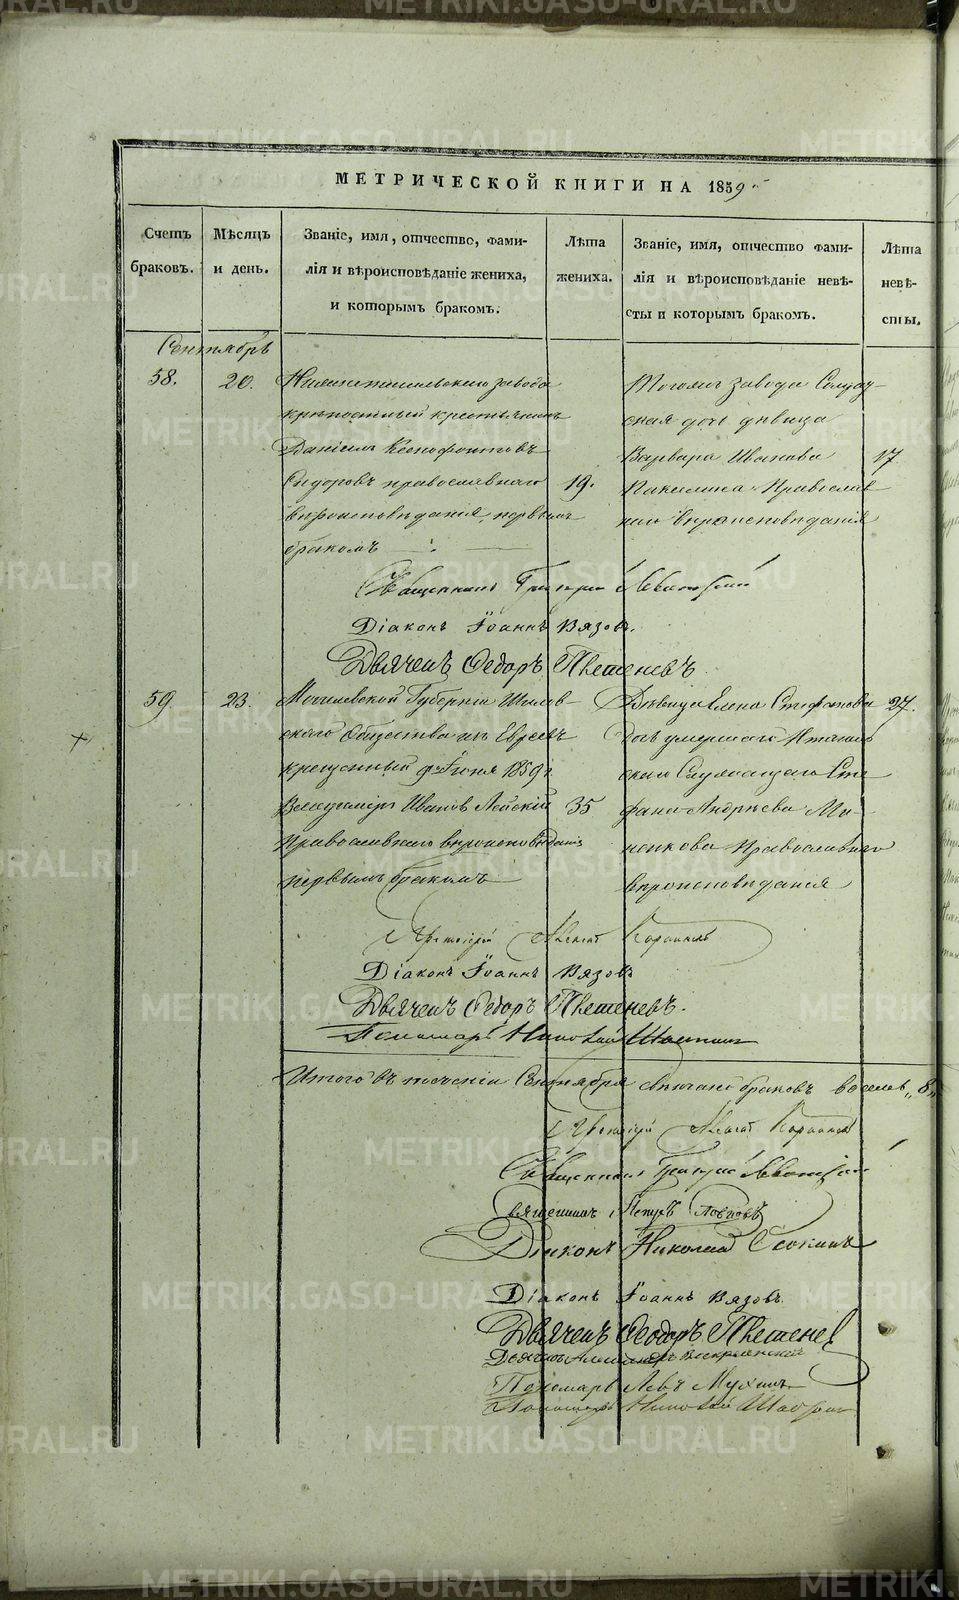 МЕТРИЧЕСКОЙ КНИГИ НА 1859
Счетъ браковъ.
Мѣсяцъ и день.
Званіе, имя, отчество, фамилія и вѣроисповѣданіе жениха, и которымъ бракомъ.
Лѣта жениха.
Званіе, имя, отчество фамилія и вѣроисповѣданіе невѣсты и которымъ бракомъ.
Лѣта невѣсты.
Сентябрь
58.
20.
Нижнетагильскаго завода
крѣпостный крестьянинъ
Даніилъ Ксенофонтовъ
Сидоровъ православнаго
вѣроисповѣданія, первымъ
бракомъ
19.
Тогожъ завода Солдат-
ская дочь дѣвица
Варвара Иванова
Православ
наго вѣроисповѣданія
17
Священникъ Григорій Левитскій
Діаконъ Іоаннъ Вязовъ.
Дьячекъ Ѳедоръ
59.
23.
Могилевской Губерніи
скаго Общества изъ Евреевъ
крещенный Іюня 1859 г.
Владимиръ Ивановъ
Православнаго вѣроисповѣданія
первымъ бракомъ
35
Дѣвица Елена Стефанова
дочь умершаго
скаго Служащаго Сте
фана Андреева Ми-
нокова Православнаго
вѣроисповѣданія
27.
Протоіерей
Діаконъ Іоаннъ Вязовъ
Дьячекъ Ѳедоръ
Пономарь Николай
Итого въ теченіи Сентября вѣнчано браковъ восемь „8„
Протоіерей
Священникъ Григорій Левитскій
Священникъ Петръ Ловцовъ
Діаконъ Николай Осокинъ
Діаконъ Іоаннъ Вязовъ.
Дьячекъ Ѳеодоръ
Дьячекъ Александръ Воскресенскій
Пономарь Левъ Мухинъ
Пономарь Николай
METRIKI.GASO-URAL.RU